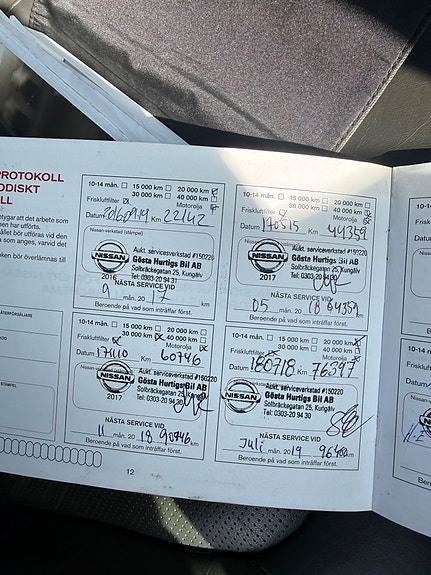 PROTOKOLL
ODISKT
LL
tygar att det arbete som
en har utförts.
ället bör utföras vid den
a som anges, varvid det
ken bör överlämnas till
10-14 mån. 15 000 km 20 000 km
30 000 km 40 000 km
Friskluftfilter Motorolja
Datum 20160919 Km 22142
Nissan-verkstad (stämpel)
Aukt. serviceverkstad #150220
NISSAN Gösta Hurtigs Bil AB
Solbräckegatan 25, Kungälv
2016 Tel: 0303-20 94 31
NÄSTA SERVICE VID
9 mån. 20 17 km
Beroende på vad som inträffar först.
10-14 mån. 15 000 km 20 000 km
30 000 km 40 000 km
Friskluftfilter Motorolja
Datum 170515 Km 44359
Aukt. serviceverkstad #150220
NISSAN Gösta Hurtigs Bil AB
Solbräckegatan 25, Kungälv
2017 Tel: 0303-20 94 31
NÄSTA SERVICE VID
05 mån. 20 18 64359 km
Beroende på vad som inträffar först.
10-14 mån. 15 000 km 20 000 km
30 000 km 40 000 km
Friskluftfilter Motorolja
Datum 171110 Km 60746
Aukt. serviceverkstad #150220
NISSAN Gösta Hurtigs Bil AB
Solbräckegatan 25, Kungälv
2017 Tel: 0303-20 94 30
NÄSTA SERVICE VID
11 mån. 20 18 90746 km
Beroende på vad som inträffar först.
10-14 mån. 15 000 km 20 000 km
30 000 km 40 000 km
Friskluftfilter Motorolja
Datum 180718 Km 76397
Aukt. serviceverkstad #150220
NISSAN Gösta Hurtigs Bil AB
Solbräckegatan 25, Kungälv
Tel: 0303-20 94 30
NÄSTA SERVICE VID
Juli mån. 2019 96400 km
Beroende på vad som inträffar först.
12